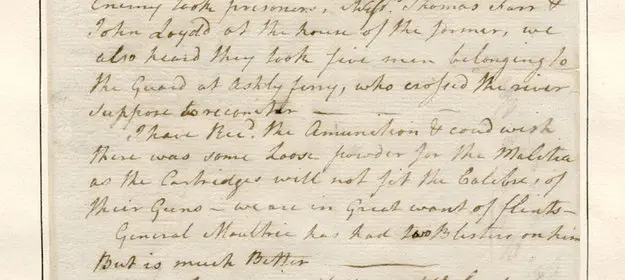 Enemy took prisoners, Messrs. Thomas Farr &
John Loydd at the house of the former, we
also heard they took five men belonging to
the Guard at Ashly ferry, who crossed the river
suppose to reconiter —
I have Recd. the Amunition & coud wish
there was some loose powder for the Malitia
as the Cartridges will not fit the Calibre, of
their Guns — we are in Great want of flints —
General Moultrie has had two Blisters on him
But is much Better —